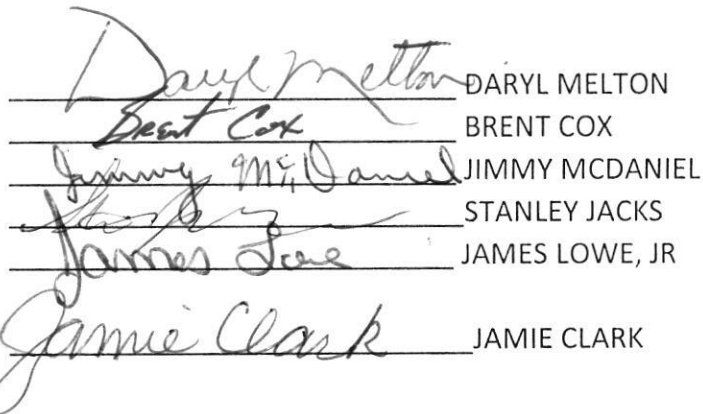 Daryl Melton DARYL MELTON
Brent Cox BRENT COX
Jimmy McDaniel JIMMY MCDANIEL
STANLEY JACKS
James Lowe JAMES LOWE, JR
Jamie Clark JAMIE CLARK